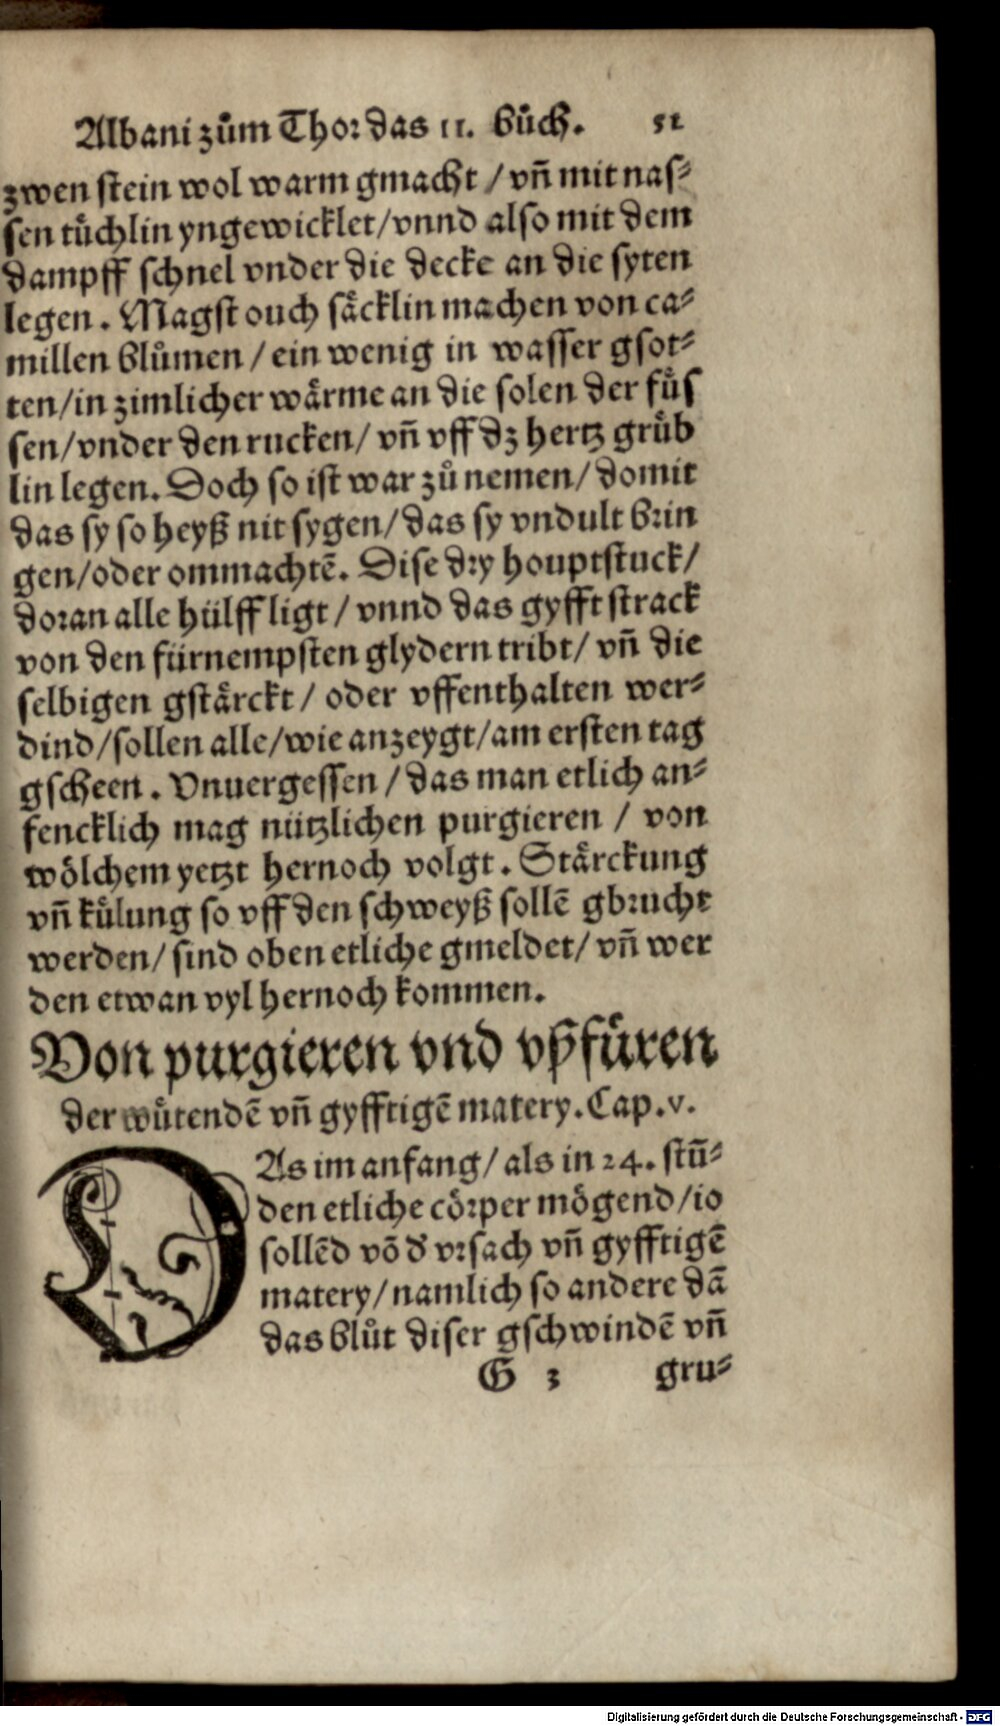 Albani zům Thor das II. bůch. 51
zwen stein wol warm gmacht / vñ mit nas⸗
sen tůchlin yngewicklet / vnnd also mit dem
dampff schnel vnder die decke an die syten
legen. Magst ouch säcklin machen von ca⸗
millen blůmen / ein wenig in wasser gsot⸗
ten / in zimlicher wärme an die solen der füs
sen / vnder den rucken / vñ vff dz hertz grüb
lin legen. Doch so ist war zů nemen / domit
das sy so heyß nit sygen / das sy vndult brin
gen / oder ommachtẽ. Dise dry houptstuck /
doran alle hülff ligt / vnnd das gyfft strack
von den fürnempsten glydern tribt / vñ die
selbigen gstärckt / oder vffenthalten wer⸗
dind / sollen alle / wie anzeygt / am ersten tag
gscheen. Vnuergessen / das man etlich an⸗
fencklich mag nützlichen purgieren / von
wölchem yetzt hernoch volgt. Stärckung
vñ külung so vff den schweyß sollẽ gbrucht
werden / sind oben etliche gmeldet / vñ wer
den etwan vyl hernoch kommen.
Von purgieren vnd vßfüren
der wütendẽ vñ gyfftigẽ matery. Cap. v.
DAs im anfang / als in 24. stũ⸗
den etliche cörper mögend / io
sollẽd võ d' vrsach vñ gyfftigẽ
matery / namlich so andere dã
das blůt diser gschwindẽ vñ
G 3 gru⸗
Digitalisierung gefördert durch die Deutsche Forschungsgemeinschaft - DFG